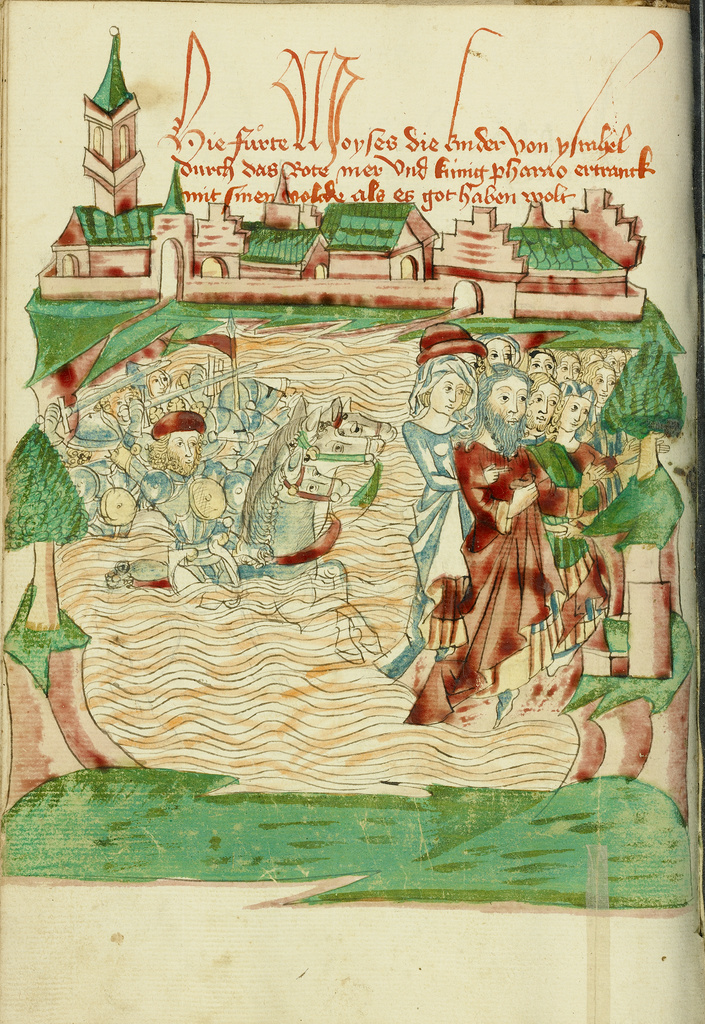 Hie fuͦrte Moyses die kinder von ysrahel
durch das Rote mer Vnd kúnig pharao ertranck
mit sinen volcke als es got haben wolt